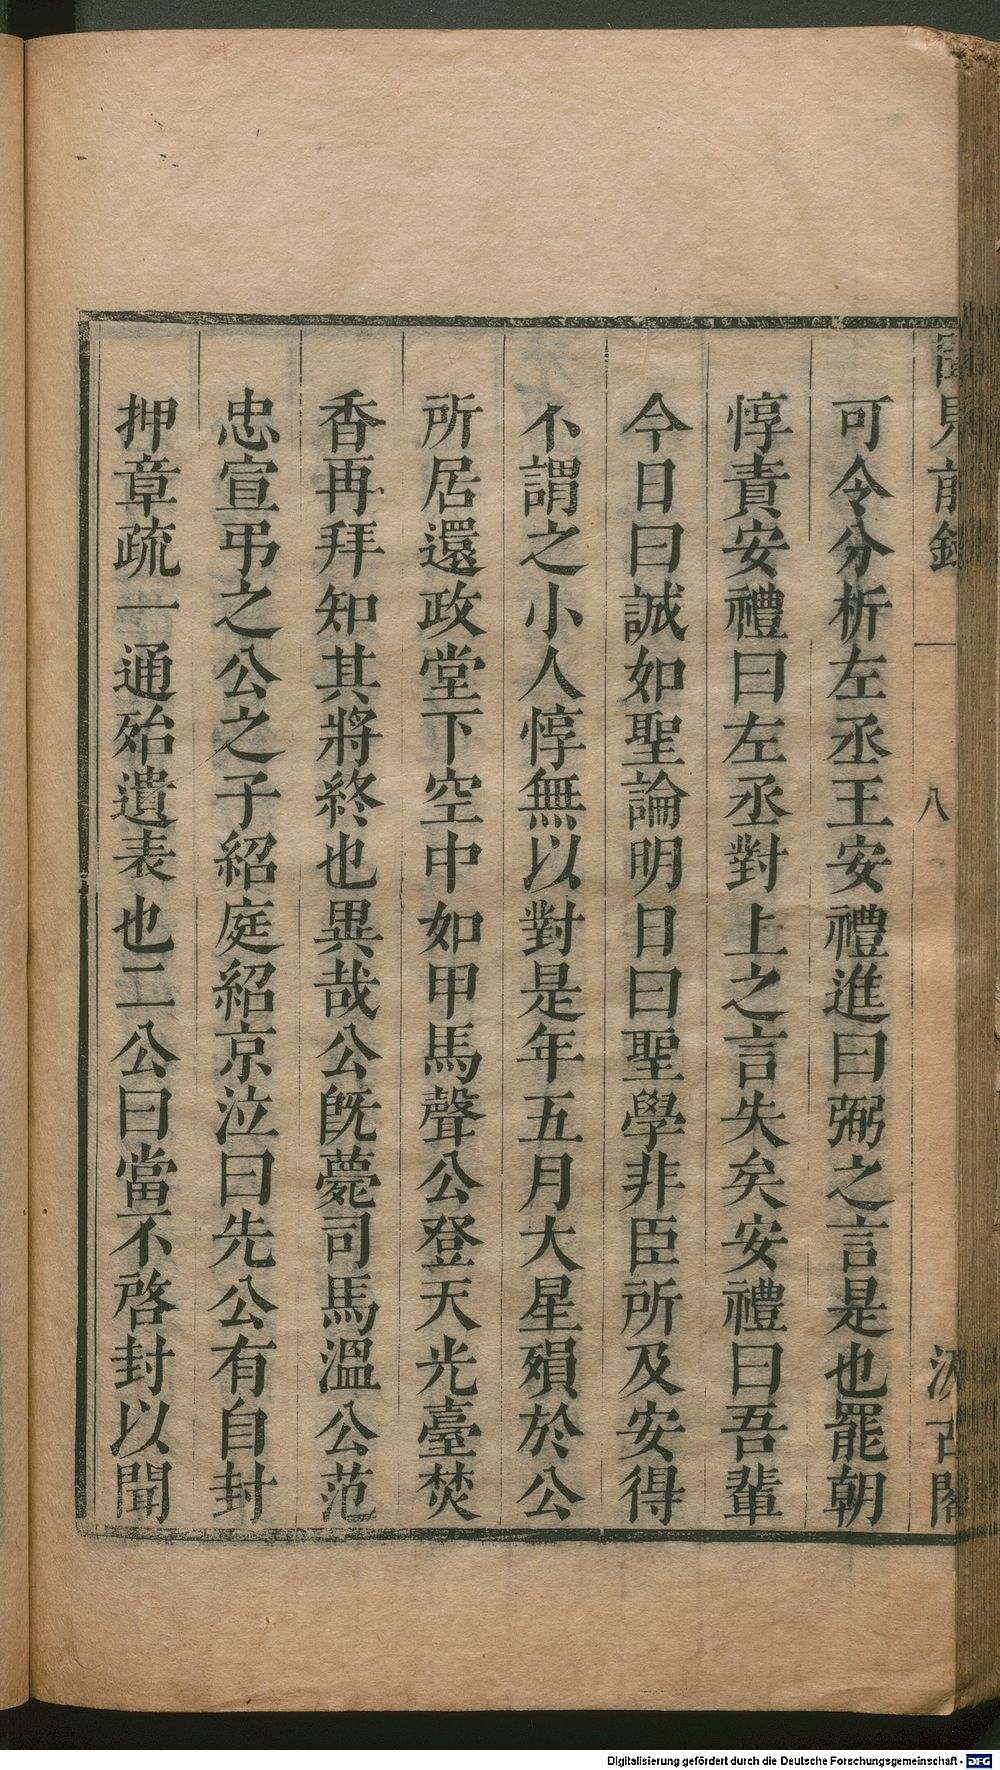 聞見前錄 八 汲古閣
可令分析左丞王安禮進曰弼之言是也罷朝
惇責安禮曰左丞對上之言失矣安禮曰吾輩
今日曰誠如聖論明日曰聖學非臣所及安得
不謂之小人惇無以對是年五月大星殞於公
所居還政堂下空中如甲馬聲公登天光臺焚
香再拜知其將終也異哉公旣薨司馬溫公范
忠宣弔之公之子紹庭紹京泣曰先公有自封
押章疏一通殆遺表也二公曰當不啓封以聞
Digitalisierung gefördert durch die Deutsche Forschungsgemeinschaft - DFG